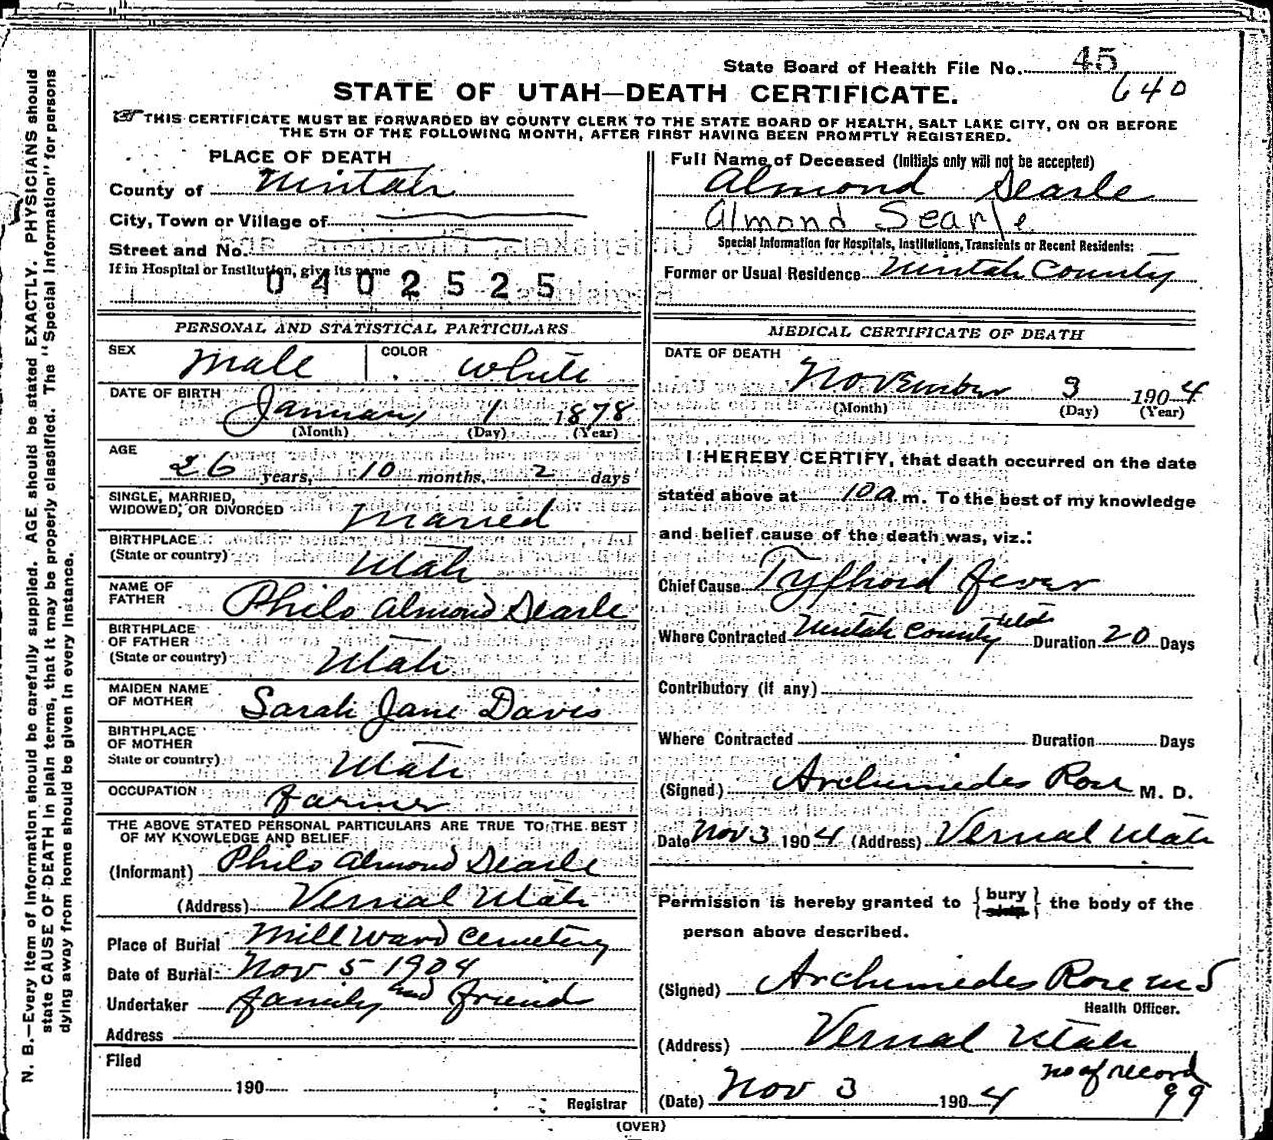 State Board of Health File No. 45
640
STATE OF UTAH—DEATH CERTIFICATE.
THIS CERTIFICATE MUST BE FORWARDED BY COUNTY CLERK TO THE STATE BOARD OF HEALTH, SALT LAKE CITY, ON OR BEFORE
THE 5TH OF THE FOLLOWING MONTH, AFTER FIRST HAVING BEEN PROMPTLY REGISTERED.
PLACE OF DEATH
County of Uintah
City, Town or Village of
Street and No.
If in Hospital or Institution, give its name
0402525
Full Name of Deceased (Initials only will not be accepted)
Almond Searle
Almond Searle
Special Information for Hospitals, Institutions, Transients or Recent Residents:
Former or Usual Residence Uintah County
PERSONAL AND STATISTICAL PARTICULARS
SEX Male COLOR White
DATE OF BIRTH January 1 1878
(Month) (Day) (Year)
AGE 26 years, 10 months, 2 days
SINGLE, MARRIED,
WIDOWED, OR DIVORCED Married
BIRTHPLACE
(State or country) Utah
NAME OF
FATHER Philo Almond Searle
BIRTHPLACE
OF FATHER
(State or country) Utah
MAIDEN NAME
OF MOTHER Sarah Jane Davis
BIRTHPLACE
OF MOTHER
State or country) Utah
OCCUPATION farmer
THE ABOVE STATED PERSONAL PARTICULARS ARE TRUE TO THE BEST
OF MY KNOWLEDGE AND BELIEF
(Informant) Philo Almond Searle
(Address) Vernal Utah
Place of Burial Mill Ward Cemetery
Date of Burial Nov 5 1904
Undertaker family and friends
Address
Filed
190
Registrar
MEDICAL CERTIFICATE OF DEATH
DATE OF DEATH
November 3 1904
(Month) (Day) (Year)
I HEREBY CERTIFY, that death occurred on the date
stated above at 10 a. m. To the best of my knowledge
and belief cause of the death was, viz.:
Chief Cause Tyfhoid fever
Where Contracted Uintah County Utah Duration 20 Days
Contributory (if any)
Where Contracted Duration Days
(Signed) Archimedes Rose M. D.
Date Nov 3 1904 (Address) Vernal Utah
Permission is hereby granted to { bury ship } the body of the
person above described.
(Signed) Archimedes Rose
Health Officer.
(Address) Vernal Utah
no of record
99
(Date) Nov 3 1904
(OVER)
N. B.—Every item of information should be carefully supplied. AGE should be stated EXACTLY. PHYSICIANS should
state CAUSE OF DEATH in plain terms, that it may be properly classified. The "Special Information" for persons
dying away from home should be given in every instance.